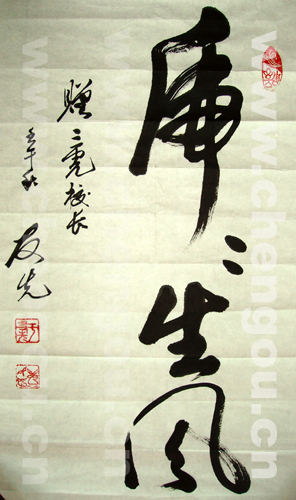 虎〻生风
赠二虎校长
壬午秋
友先
www.chengou.cn